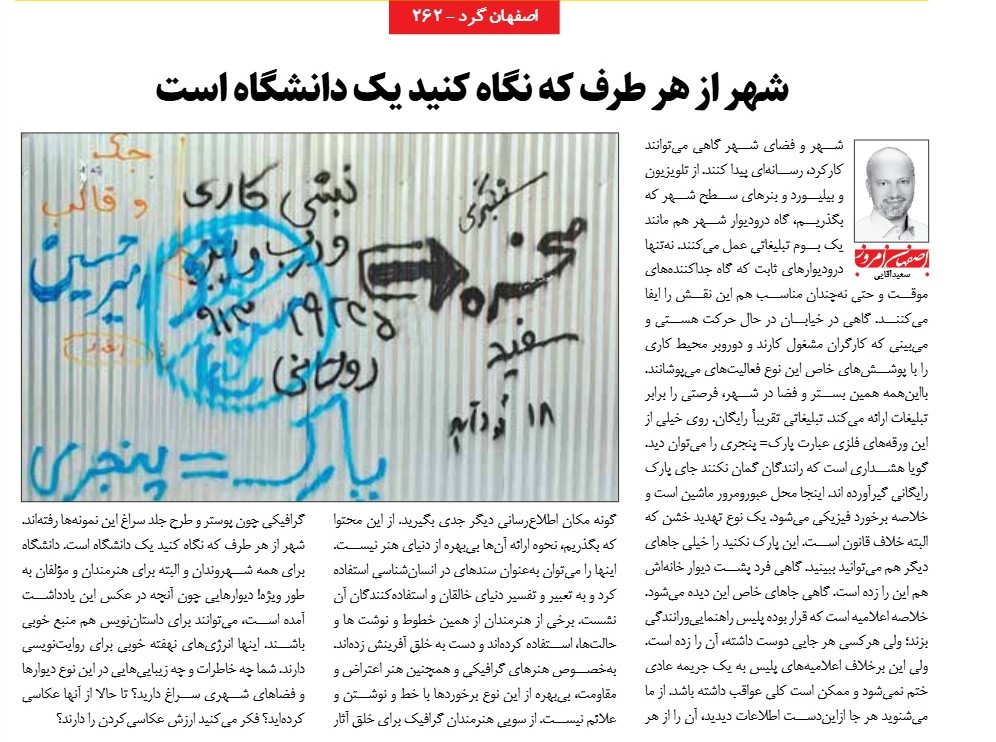 اصفهان گرد - ۲۶۲
شهر از هر طرف که نگاه کنید یک دانشگاه است
اصفهان امروز
سعیدآقایی
شهر و فضای شهر گاهی می‌توانند
کارکرد، رسانه‌ای پیدا کنند. از تلویزیون
و بیلبورد و بنرهای سطح شهر که
بگذریم، گاه درودیوار شهر هم مانند
یک بوم تبلیغاتی عمل می‌کنند. نه‌تنها
درودیوارهای ثابت که گاه جداکننده‌های
موقت و حتی نه‌چندان مناسب هم این نقش را ایفا
می‌کنند. گاهی در خیابان در حال حرکت هستی و
می‌بینی که کارگران مشغول کارند و دوروبر محیط کاری
را با پوشش‌های خاص این نوع فعالیت‌های می‌پوشانند.
بااین‌همه همین بستر و فضا در شهر، فرصتی را برابر
تبلیغات ارائه می‌کند. تبلیغاتی تقریباً رایگان. روی خیلی از
این ورقه‌های فلزی عبارت پارک= پنچری را می‌توان دید.
گویا هشداری است که رانندگان گمان نکنند جای پارک
رایگانی گیرآورده اند. اینجا محل عبورومرور ماشین است و
خلاصه برخورد فیزیکی می‌شود. یک نوع تهدید خشن که
البته خلاف قانون است. این پارک نکنید را خیلی جاهای
دیگر هم می‌توانید ببینید. گاهی فرد پشت دیوار خانه‌اش
هم این را زده است. گاهی جاهای خاص این دیده می‌شود.
خلاصه اعلامیه است که قرار بوده پلیس راهنمایی‌ورانندگی
بزند؛ ولی هرکسی هر جایی دوست داشته، آن را زده است.
ولی این برخلاف اعلامیه‌های پلیس به یک جریمه عادی
ختم نمی‌شود و ممکن است کلی عواقب داشته باشد. از ما
می‌شنوید هر جا ازاین‌دست اطلاعات دیدید، آن را از هر
جک
و قالب
امیرحسین
نبشی کاری
و درب و پنجره
۹۱۳ ۲۹۲۲۵
روحانی
سنگبری
سفید
۱۸
پارک = پنچری
گونه مکان اطلاع‌رسانی دیگر جدی بگیرید. از این محتوا
که بگذریم، نحوه ارائه آن‌ها بی‌بهره از دنیای هنر نیست.
اینها را می‌توان به‌عنوان سندهای در انسان‌شناسی استفاده
کرد و به تعبیر و تفسیر دنیای خالقان و استفاده‌کنندگان آن
نشست. برخی از هنرمندان از همین خطوط و نوشت ها و
حالت‌ها، استفاده کرده‌اند و دست به خلق آفرینش زده‌اند.
به‌خصوص هنرهای گرافیکی و همچنین هنر اعتراض و
مقاومت، بی‌بهره از این نوع برخوردها با خط و نوشتن و
علائم نیست. از سویی هنرمندان گرافیک برای خلق آثار
گرافیکی چون پوستر و طرح جلد سراغ این نمونه‌ها رفته‌اند.
شهر از هر طرف که نگاه کنید یک دانشگاه است. دانشگاه
برای همه شهروندان و البته برای هنرمندان و مؤلفان به
طور ویژه! دیوارهایی چون آنچه در عکس این یادداشت
آمده است، می‌توانند برای داستان‌نویس هم منبع خوبی
باشند. اینها انرژی‌های نهفته خوبی برای روایت‌نویسی
دارند. شما چه خاطرات و چه زیبایی‌هایی در این نوع دیوارها
و فضاهای شهری سراغ دارید؟ تا حالا از آنها عکاسی
کرده‌اید؟ فکر می‌کنید ارزش عکاسی‌کردن را دارند؟